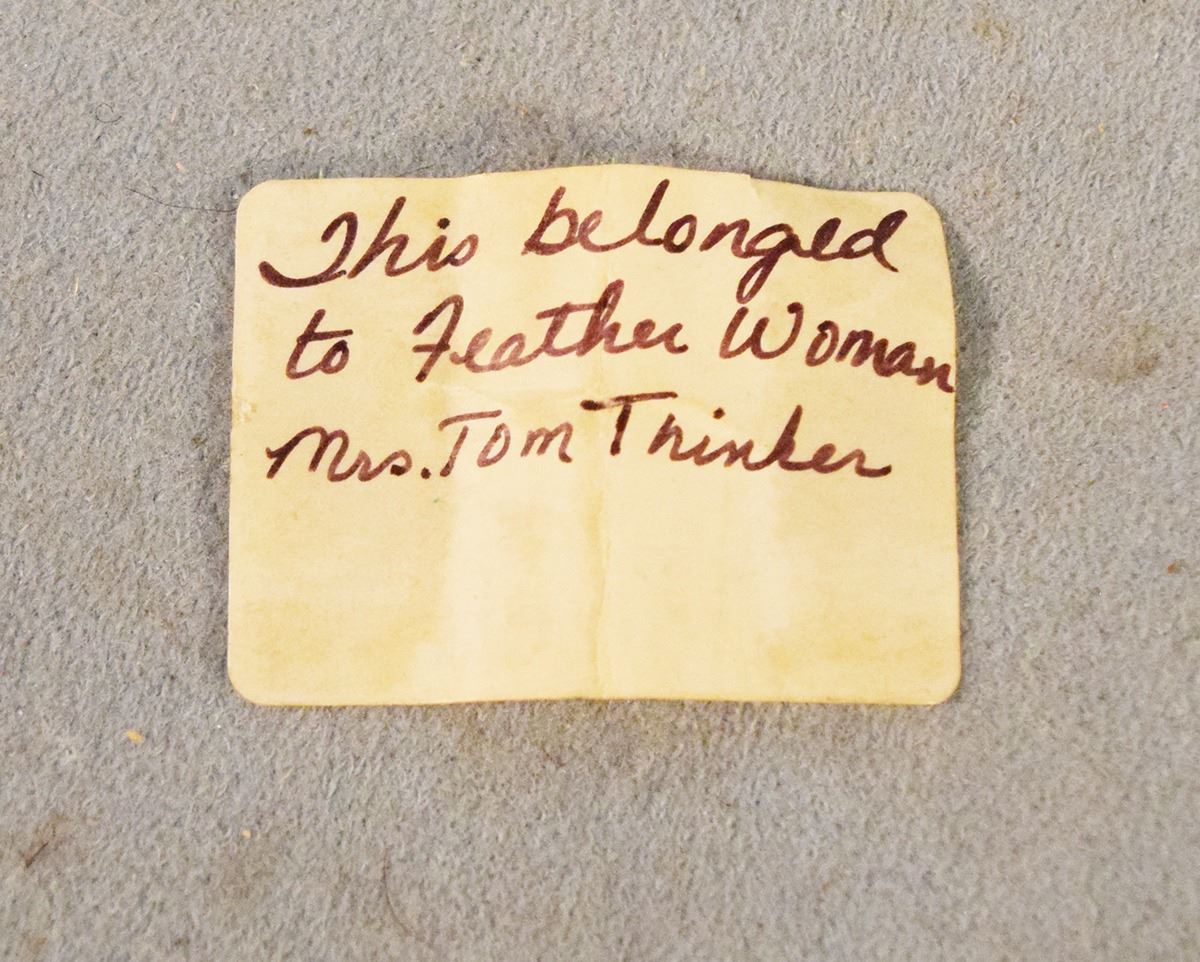 This belonged
to Feather Woman
Mrs. Tom Thinker